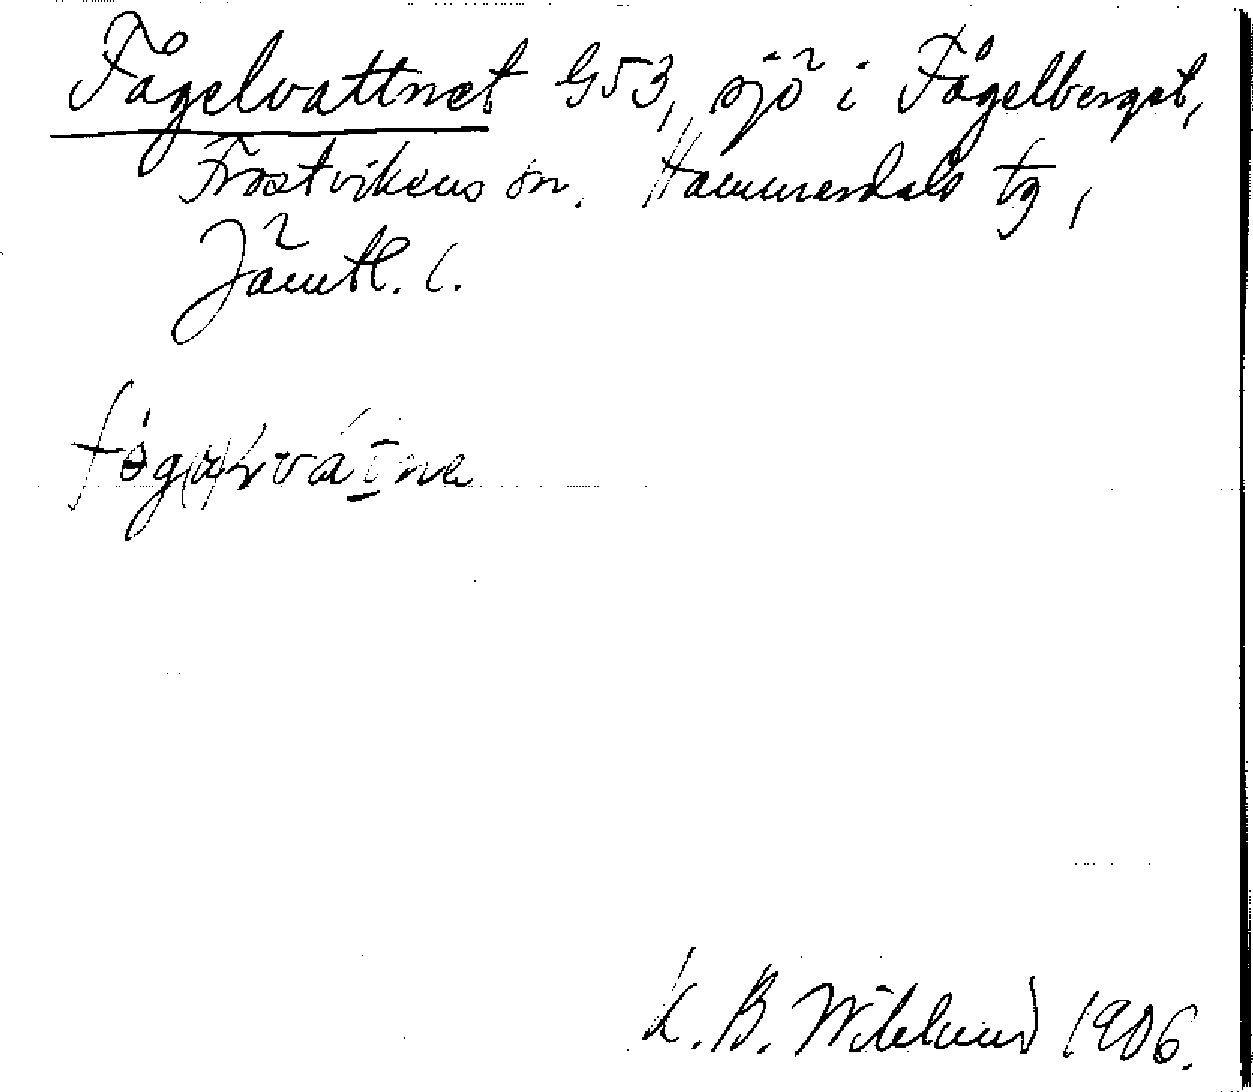 Fågelvattnet G53, sjö i Fågelberget,
Frostvikens sn. Hammerdals tg,
Jämtl. l.
K. B. Wiklund 1906.